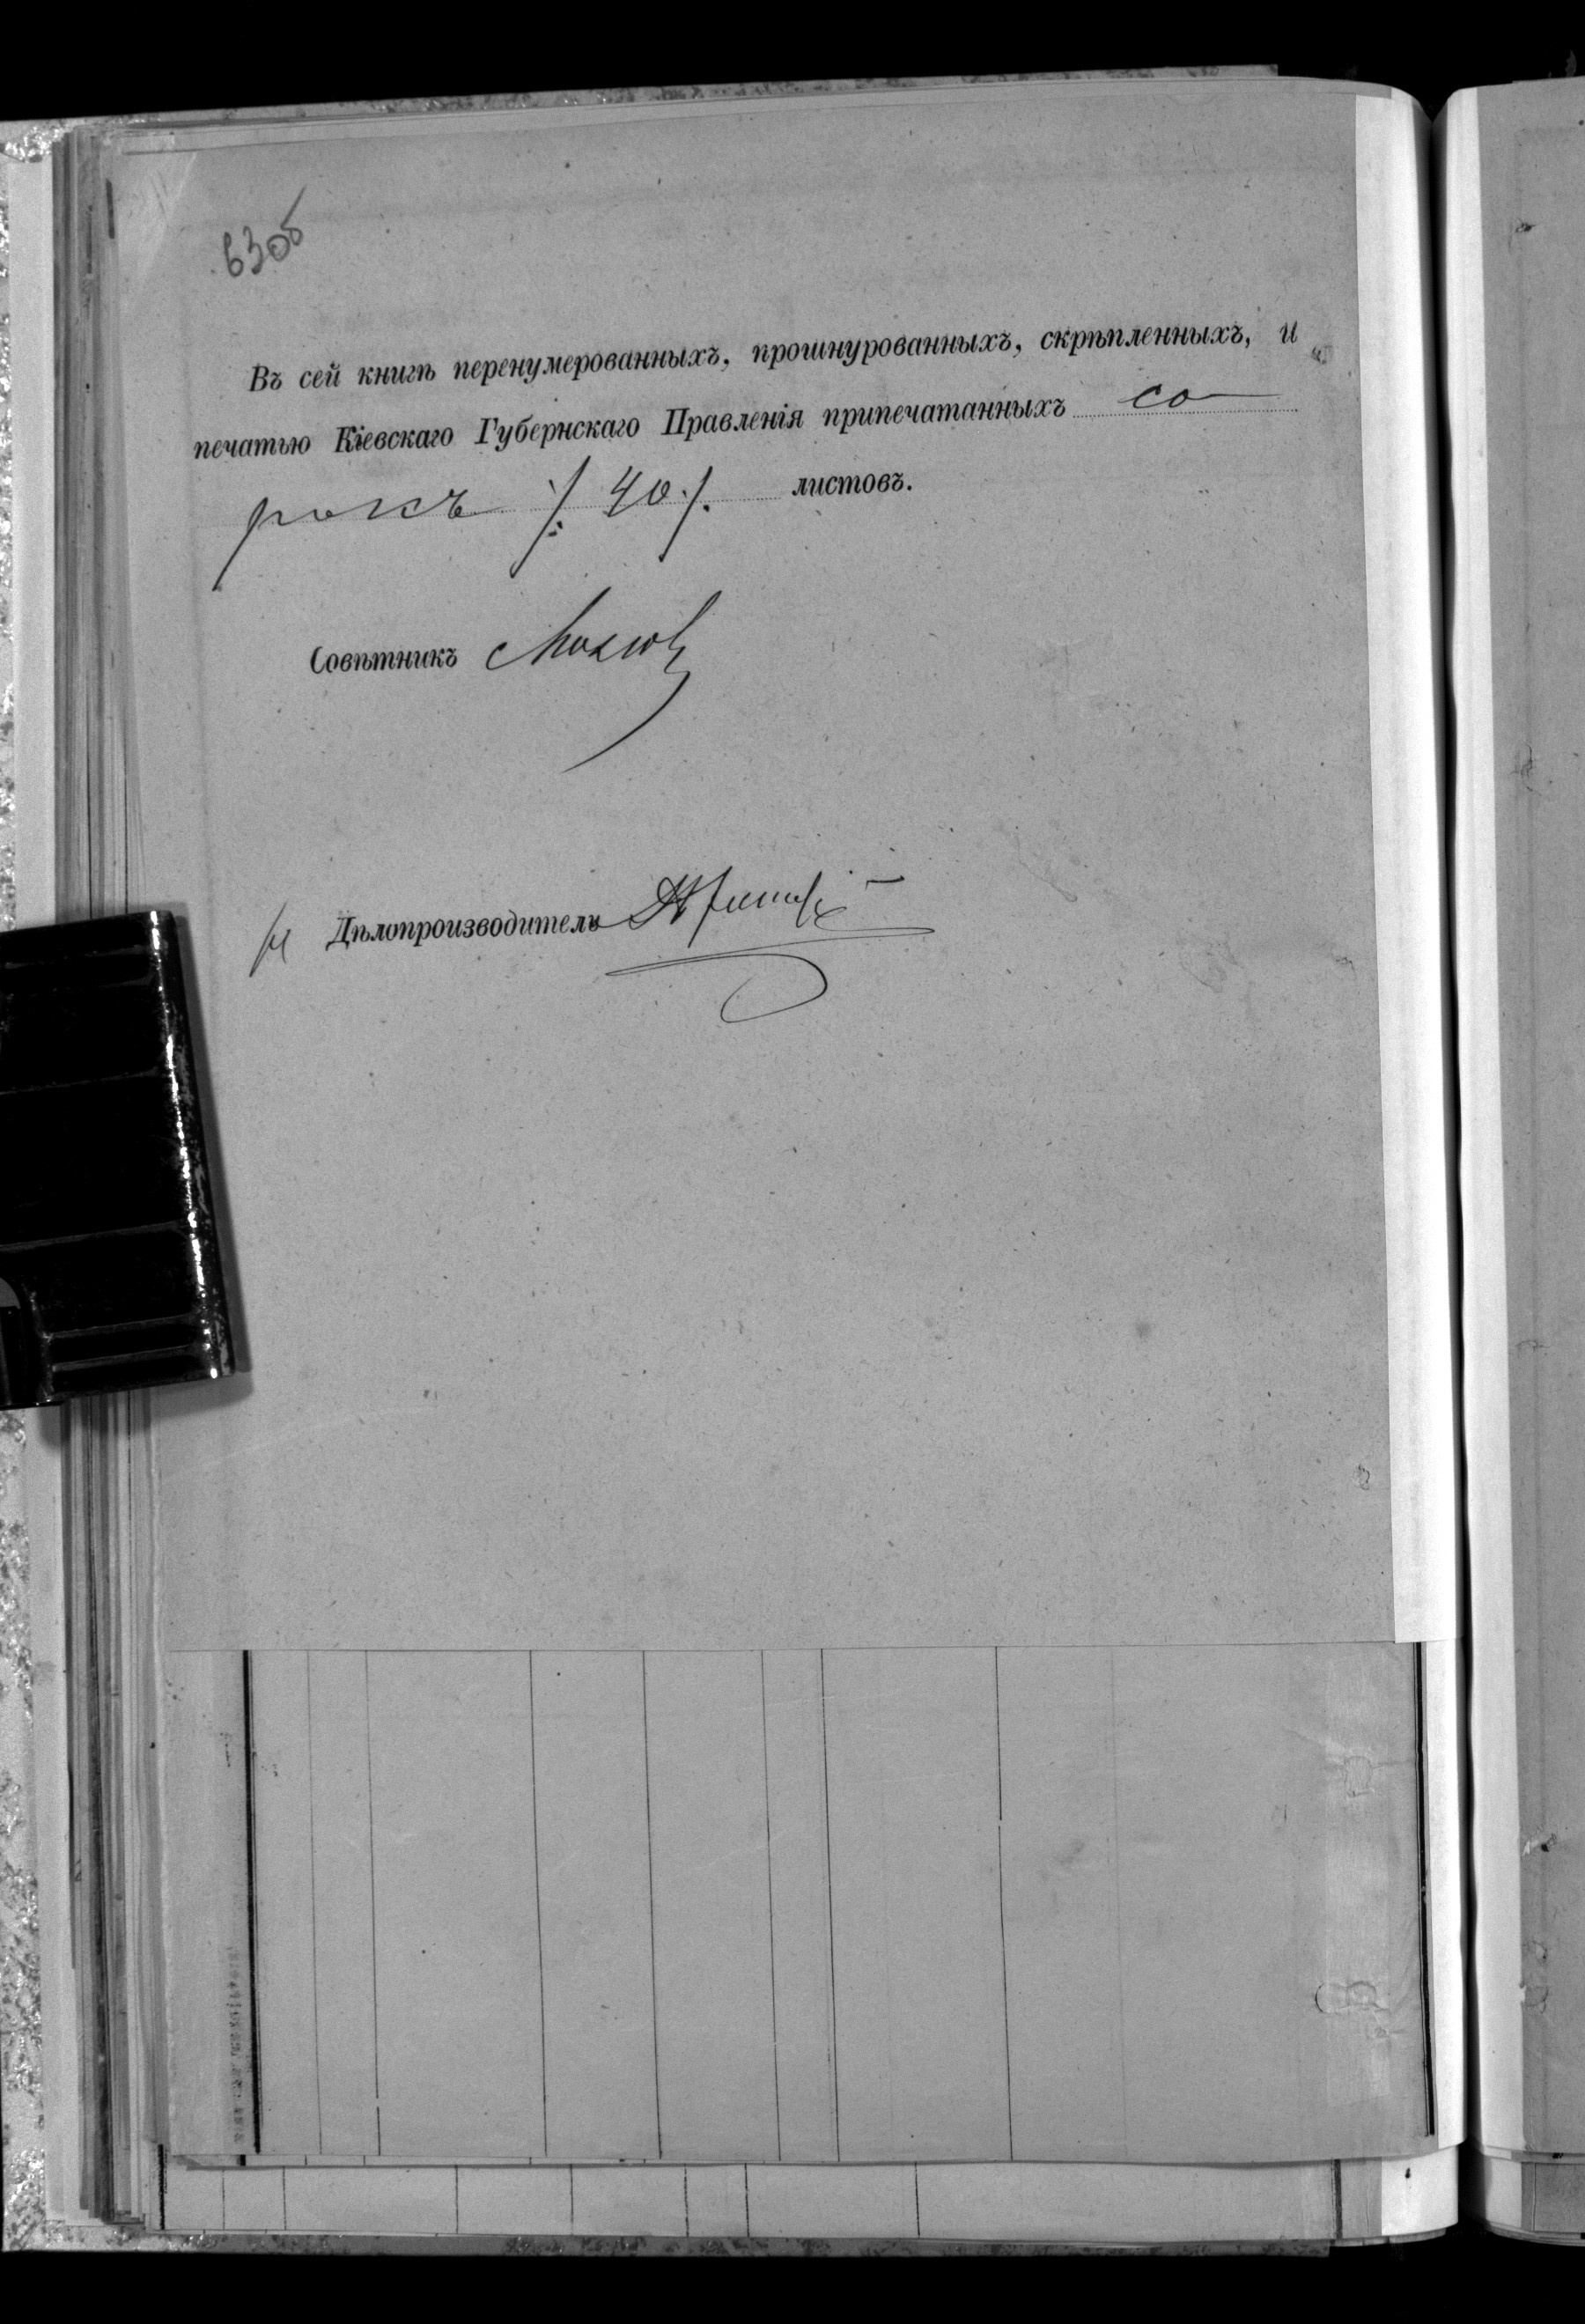 63об
Въ сей книгѣ перенумерованныхъ, прошнурованныхъ, скрѣпленныхъ, и
печатью Кіевскаго Губернскаго Правленія припечатанныхъ со
рокъ /. 40 /. листовъ.
Совѣтникъ
Дѣлопроизводитель